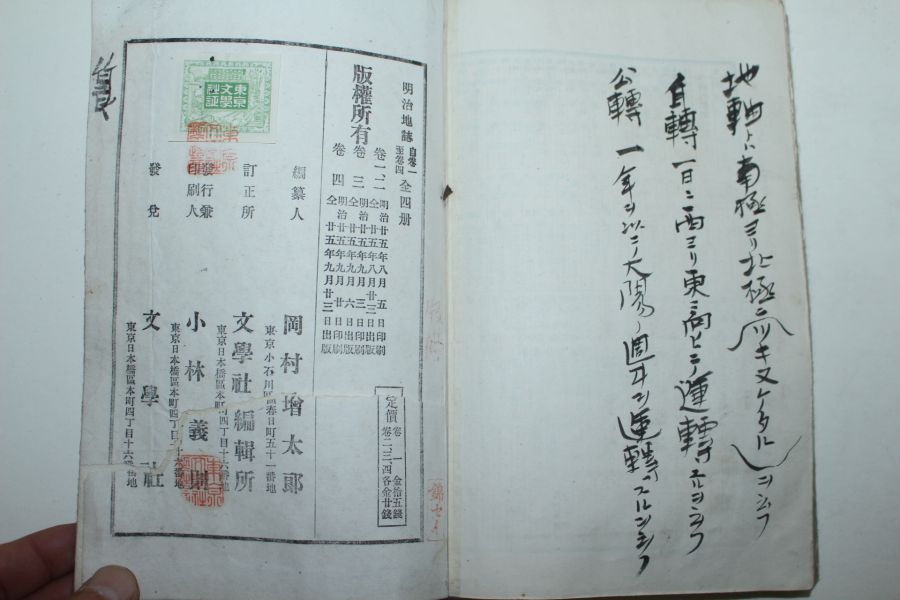 地軸トハ南極ヨリ北極ニツキヌケタルヲ云フ
自轉 一日ニ西ヨリ東ニ向ヒテ運轉スルヲ云フ
公轉 一年ヲ以テ大陽ノ週囲ヲ運轉スルヲ云フ
明治地誌 自卷一至卷四 全四册
版權所有
卷一、二 明治廿五年八月五日印刷
仝廿五年八月廿三日出版
卷三 明治廿五年九月三日印刷
仝廿五年九月六日出版
卷四 明治廿五年九月廿日印刷
仝廿五年九月廿三日出版
定價 卷一 金拾五錢
卷二、三、四各金廿錢
編纂人 岡村增太郎
東京小石川區春日町五十一番地
訂正所 文學社編輯所
東京日本橋區本町四丁目十六番地
發行兼印刷人 小林義則
東京日本橋區本町四丁目十六番地
發兌 文學社
東京日本橋區本町四丁目十六番地
東京文學社證